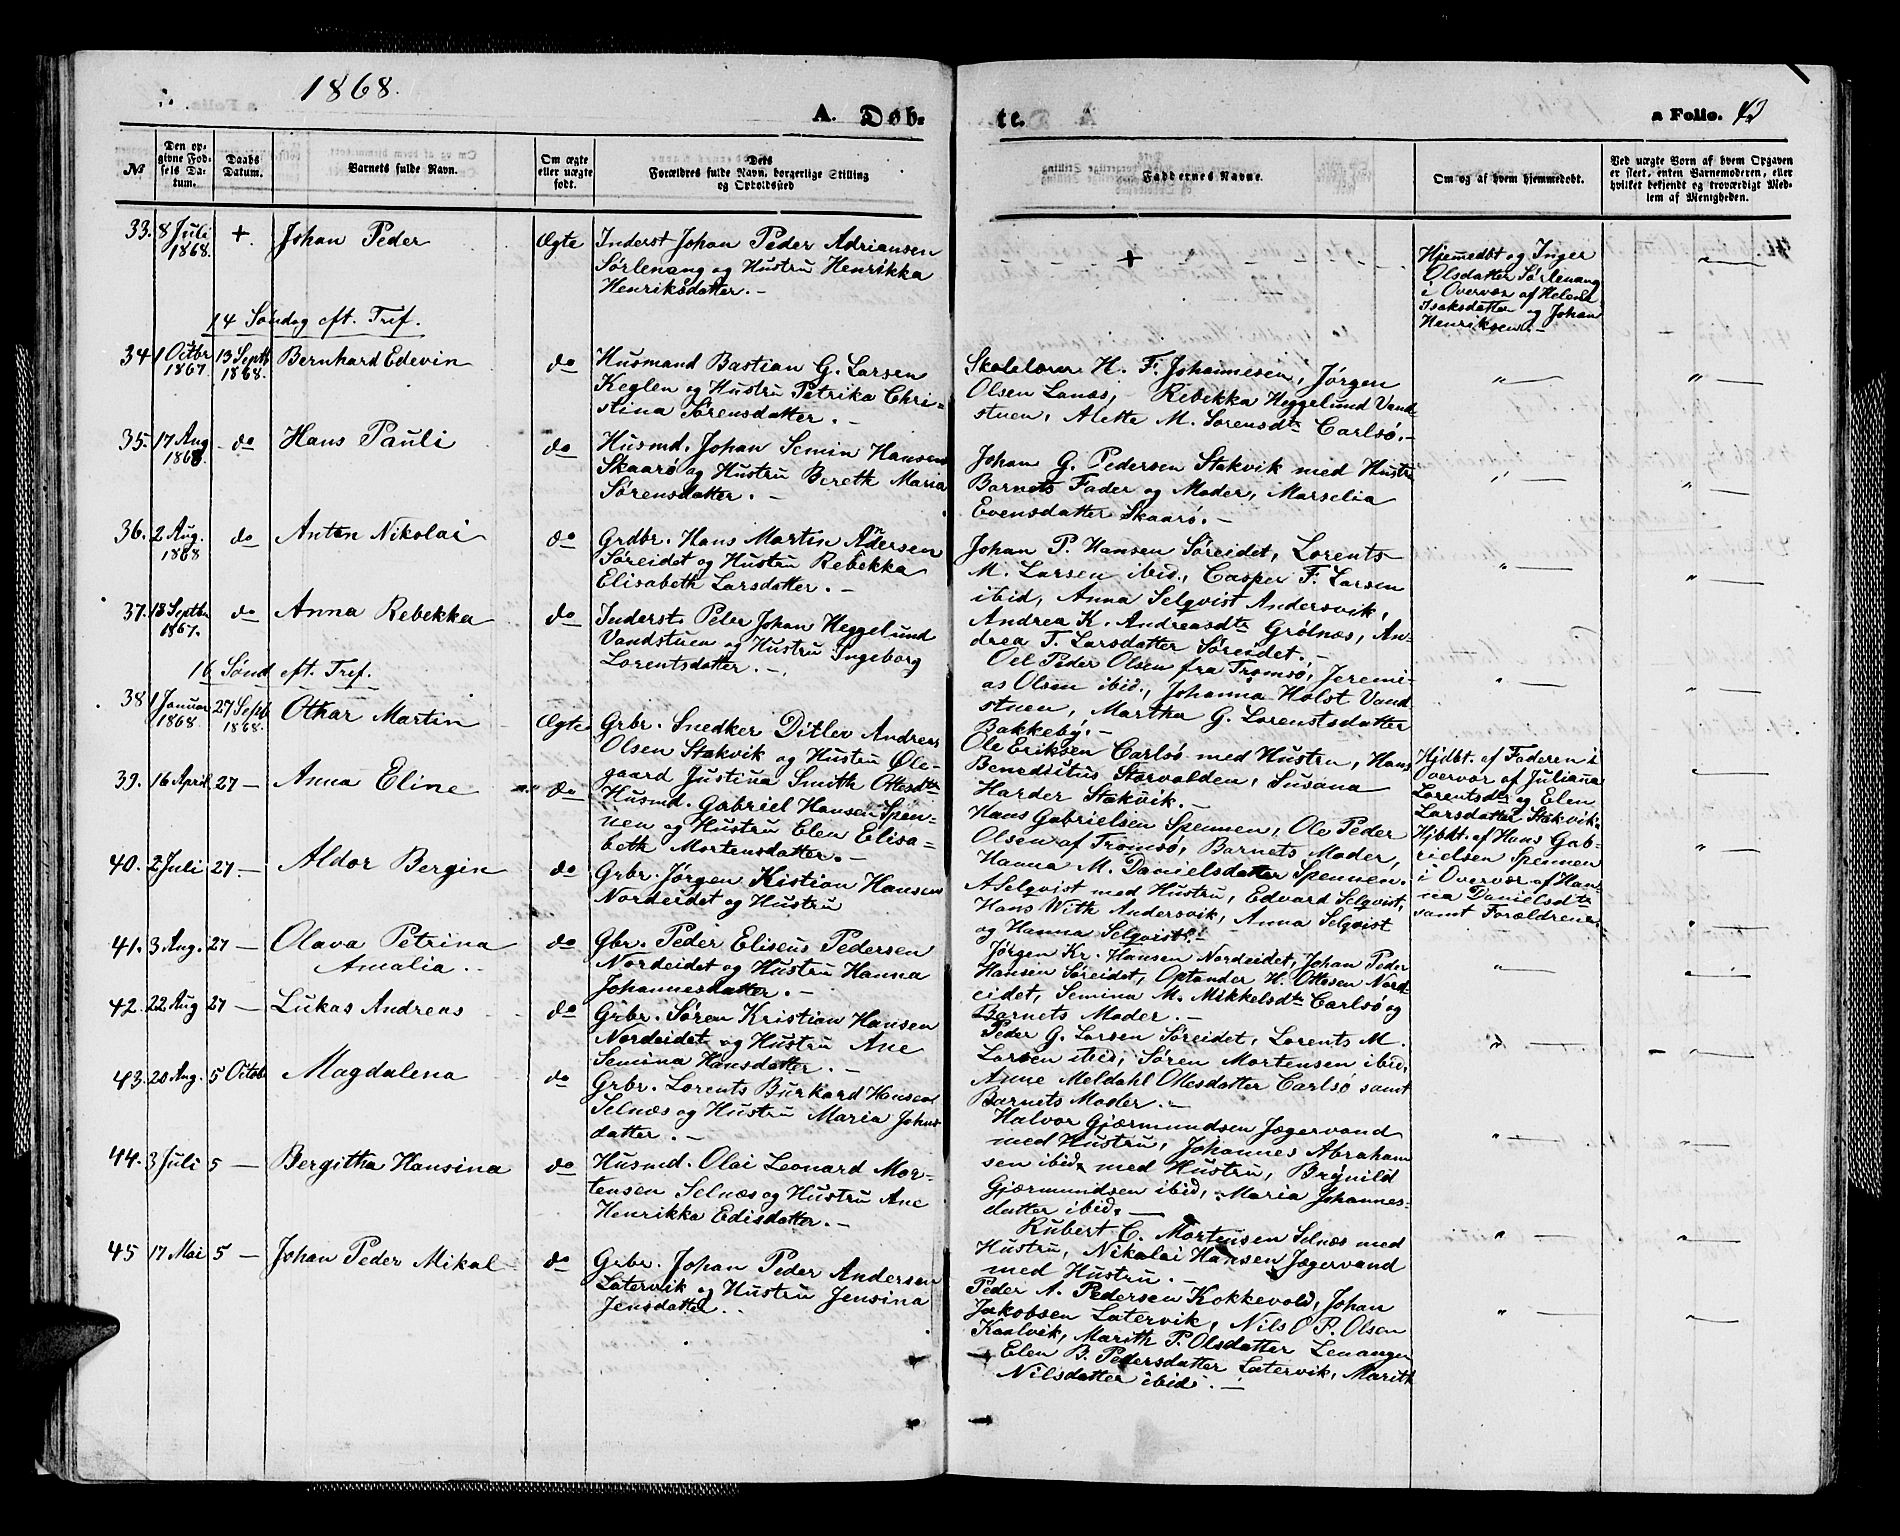 1868.
A. Døb-
te.
a Folio. 42
№
Den op-
givne Fød-
sels Da-
tum.
Daabs
Datum.
Barnets fulde Navn.
Om ægte
eller uægte
født.
Dets
Forældres fulde Navn, borgerlige Stilling
og Opholdssted
Faddernes Navne.
Om og af hvem hjemmedøbt.
Ved uægte Børn af hvem Opgaven
er skeet, enten Barnemoderen, eller
hvilket bekjendt og troværdigt Med-
lem af Menigheden.
33. 8 Juli
1868.
+.
Johan Peder
Ægte
Inderst Johan Peder Adriansen
Sørlenang og Hustru Henrikka
Henriksdatter. -
+
Hjemedbt og Inger
Olsdatter Sørlenang
i Overvær af Helena
Isaksdatter og Johan
Henriksen. -
14 Søndag eft. Tref.
34. 1 Octbr
1867.
13 Septb
1868.
Bernhard Edevin
do
Husmand Bastian G. Larsen
Keglen og Hustru Petrika Chri-
stina Sørensdatter. -
Skolelærer H. F. Johannesen, Jørgen
Olsen Lanæs, Rebekka Heggelund Vand-
stuen, Alette M. Sørensdtr Carlsø. -
35. 17 Aug
1868.
do
Hans Pauli
do
Husmd. Johan Semin Hansen
Skaarø og Hustru Bereth Maria
Sørensdatter. -
Johan G. Pedersen Stakvik med Hustru
Barnets Fader og Moder, Marselia
Evensdatter Skaarø. -
36. 2 Aug.
1868
do
Anton Nikolai
do
Grdbr. Hans Martin Andersen
Søreidet og Hustru Rebekka
Elisabeth Larsdatter. -
Johan P. Hansen Søreidet, Lorents
M. Larsen ibid., Casper F. Larsen
ibid, Anna Selqvist Andersvik,
Andrea K. Andreasdtr Grølnæs, An-
drea T. Larsdatter Søreidet. -
37. 18 Septbr
1867.
do
Anna Rebekka
do
Inderst Peter Johan Heggelund
Vandstuen og Hustru Ingeborg
Lorentsdatter. -
Oel Peder Olsen fra Tromsø, Jeremi-
as Olsen ibid., Johanna Holst Vand-
stuen, Martha G. Lorenstsdatter
Bakkeby. -
16 Sønd eft. Tref.
38. 1 Januar
1868.
27 Septb
1868.
Othar Martin
Ægte
Grbr. Snedker Ditlev Andreas
Olsen Stakvik og Hustru Øle-
gaard Justina Smith Ottesdtr
Ole Eriksen Carlsø med Hustru, Hans
Benedictus Storvolden, Susana
Harder Stakvik. -
Hjdbt. af Faderen i
Overvær af Juliana
Lorentsdtr og Elen
Larsdatter Stakvik.
39. 16 April 27 -
Anna Eline
do
Husmd. Gabriel Hansen Spen-
nen og Hustru Elen Elisa-
beth Mortensdatter. -
Hans Gabrielsen Spennen, Ole Peder
Olsen af Tromsø, Barnets Moder,
Hanna M. Danielsdatter Spennen.
Hjbkt. af Hans Gab-
rielsen Spennen
i Overvær af Han-
na Danielsdtr
samt Forældrene.
40. 2 Juli 27. -
Aldor Bergin
do
Grbr. Jørgen Kistian Hansen
Nordeidet og Hustru
A Selqvist med Hustru, Edvard Selqvist,
Hans With Andersvik, Anna Selqvist
og Hanna Selqvist. -
41. 3 Aug. 27 -
Olava Petrina
Amalia. -
do
Gbr. Peder Eliseus Pedersen
Nordeidet og Hustru Hanna
Johannesdatter. -
Jørgen Kr. Hansen Nordeidet, Johan Peder
Hansen Søreidet, Optander H. Ottesen Nord-
eidet, Semina M. Mikkelsdtr Carlsø og
Barnets Moder. -
42. 22 Aug 27 -
Lukas Andreas
do
Grbr. Søren Kristian Hansen
Nordeidet og Hustru Ane
Semina Hansdatter. -
Peder G. Larsen Søreidet, Lorents M.
Larsen ibid, Søren Mortensen ibid,
Anne Meldahl Ottesdatter Carlsø samt
Barnets Moder. -
43. 20 Aug. 5 Octob
Magdalena
do
Grbr. Lorents Burkard Hansen
Selnæs og Hustru Maria Johns-
datter. -
Halvor Gjærmundsen Jægervand
med Hustru, Johannes Abraham
sen ibid, med Hustru, Brynild
Gjærmundsen ibid, Maria Johannes-
datter ibid, -
44. 3 Juli 5 -
Bergitha Hansina
do
Husmd. Olai Leonard Mor-
tensen Selnæs og Hustru Ane
Henrikka Edisdatter. -
Rubert C. Mortensen Selnæs med
Hustru, Nikolai Hansen Jægervand
med Hustru. -
45 17 Mai 5 -
Johan Peder Mikal
do
Grbr. Johan Peder Andersen
Latervik og Hustru Jensina
Jensdatter. .
Peder A. Pedersen Kokkevold, Johan
Jakobsen Latervik, Nils O P. Olsen
Kaalvik, Marith P. Olsdatter Lenangen
Elen B. Pedersdatter Latervik, Marith
Nilsdatter ibid. -